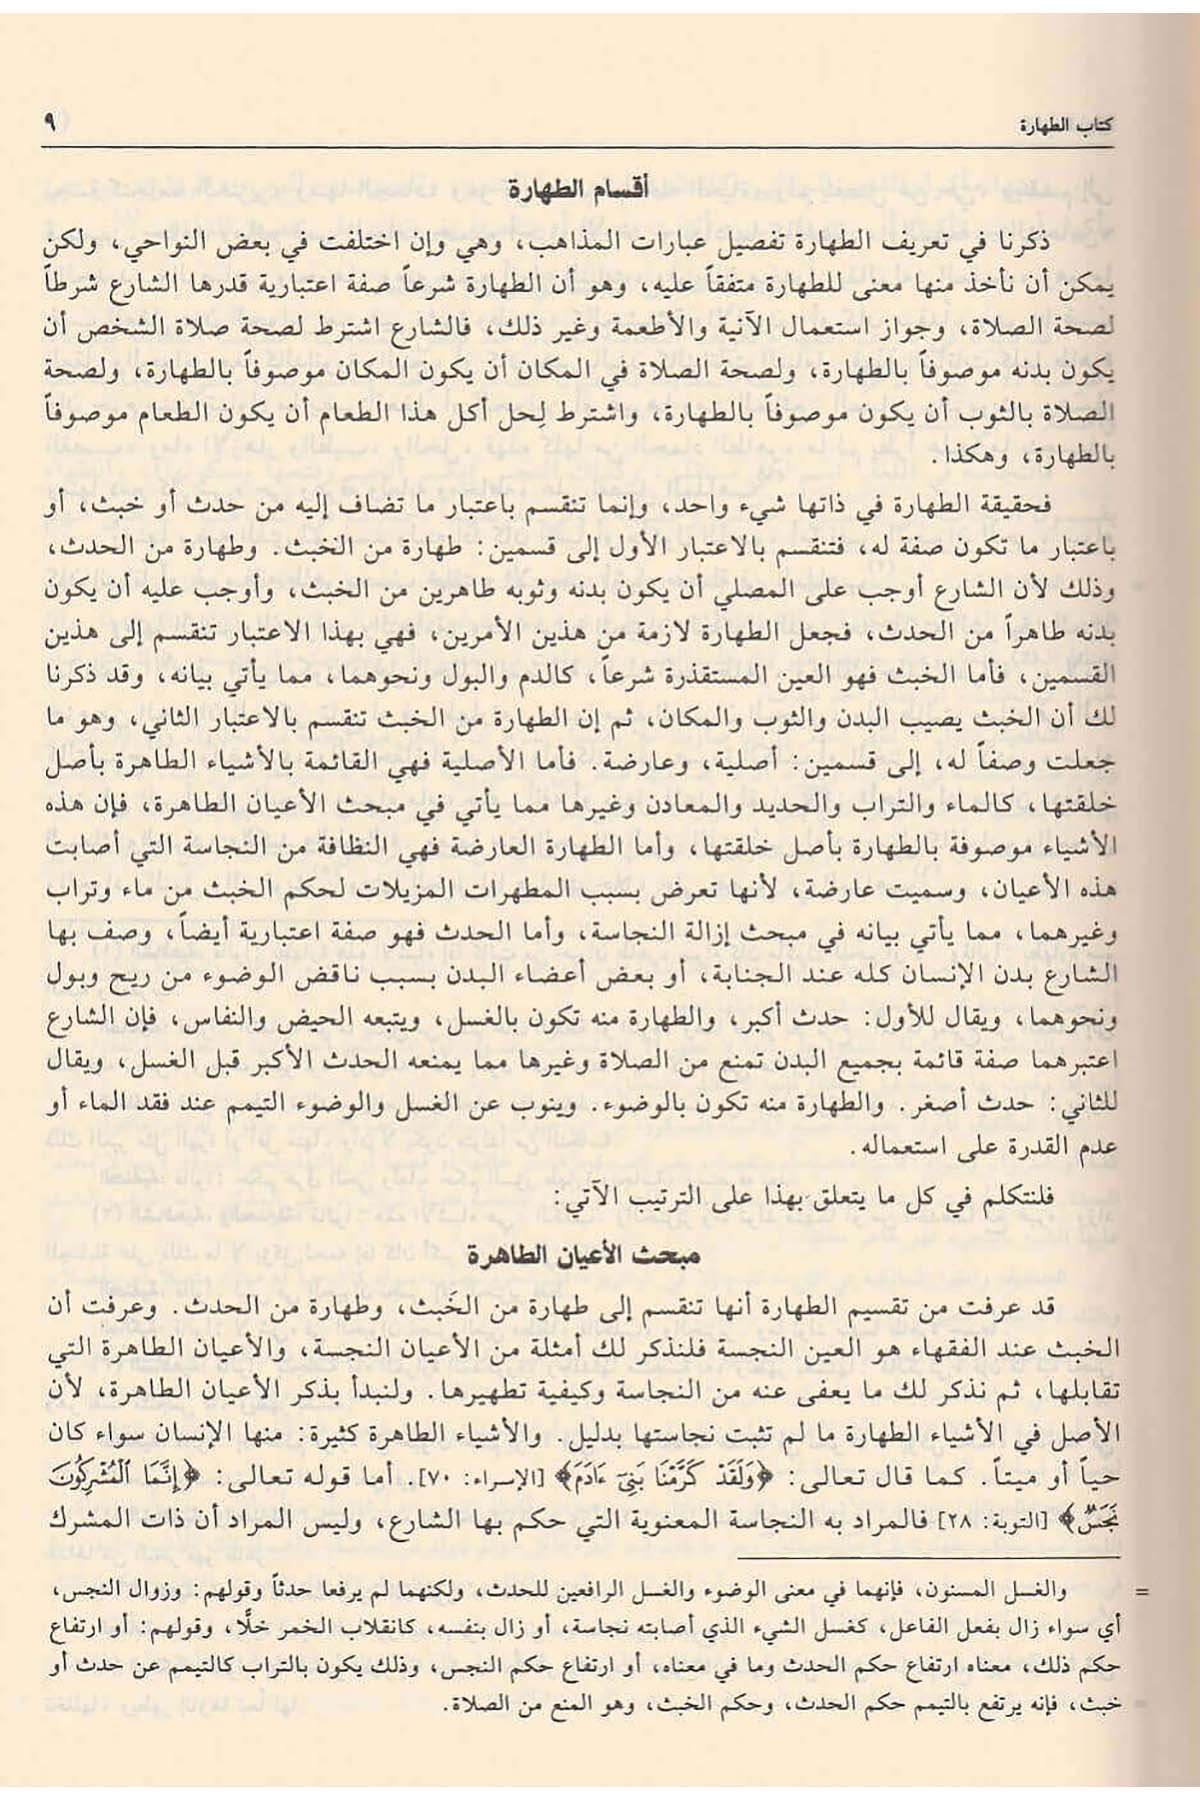 كتاب الطهارة ٩
أقسام الطهارة
ذكرنا في تعريف الطهارة تفصيل عبارات المذاهب، وهي وإن اختلفت في بعض النواحي، ولكن
يمكن أن نأخذ منها معنى للطهارة متفقاً عليه، وهو أن الطهارة شرعاً صفة اعتبارية قدرها الشارع شرطاً
لصحة الصلاة، وجواز استعمال الآنية والأطعمة وغير ذلك، فالشارع اشترط لصحة صلاة الشخص أن
يكون بدنه موصوفاً بالطهارة، ولصحة الصلاة في المكان أن يكون المكان موصوفاً بالطهارة، ولصحة
الصلاة بالثوب أن يكون موصوفاً بالطهارة، واشترط لِحل أكل هذا الطعام أن يكون الطعام موصوفاً
بالطهارة، وهكذا.
فحقيقة الطهارة في ذاتها شيء واحد، وإنما تنقسم باعتبار ما تضاف إليه من حدث أو خبث، أو
باعتبار ما تكون صفة له، فتنقسم بالاعتبار الأول إلى قسمين: طهارة من الخبث. وطهارة من الحدث،
وذلك لأن الشارع أوجب على المصلي أن يكون بدنه وثوبه طاهرين من الخبث، وأوجب عليه أن يكون
بدنه طاهراً من الحدث، فجعل الطهارة لازمة من هذين الأمرين، فهي بهذا الاعتبار تنقسم إلى هذين
القسمين، فأما الخبث فهو العين المستقذرة شرعاً، كالدم والبول ونحوهما، مما يأتي بيانه، وقد ذكرنا
لك أن الخبث يصيب البدن والثوب والمكان، ثم إن الطهارة من الخبث تنقسم بالاعتبار الثاني، وهو ما
جعلت وصفاً له، إلى قسمين: أصلية، وعارضة. فأما الأصلية فهي القائمة بالأشياء الطاهرة بأصل
خلقتها، كالماء والتراب والحديد والمعادن وغيرها مما يأتي في مبحث الأعيان الطاهرة، فإن هذه
الأشياء موصوفة بالطهارة بأصل خلقتها، وأما الطهارة العارضة فهي النظافة من النجاسة التي أصابت
هذه الأعيان، وسميت عارضة، لأنها تعرض بسبب المطهرات المزيلات لحكم الخبث من ماء وتراب
وغيرهما، مما يأتي بيانه في مبحث إزالة النجاسة، وأما الحدث فهو صفة اعتبارية أيضاً، وصف بها
الشارع بدن الإنسان كله عند الجنابة، أو بعض أعضاء البدن بسبب ناقض الوضوء من ريح وبول
ونحوهما، ويقال للأول: حدث أكبر، والطهارة منه تكون بالغسل، ويتبعه الحيض والنفاس، فإن الشارع
اعتبرهما صفة قائمة بجميع البدن تمنع من الصلاة وغيرها مما يمنعه الحدث الأكبر قبل الغسل، ويقال
للثاني: حدث أصغر. والطهارة منه تكون بالوضوء. وينوب عن الغسل والوضوء التيمم عند فقد الماء أو
عدم القدرة على استعماله.
فلنتكلم في كل ما يتعلق بهذا على الترتيب الآتي:
مبحث الأعيان الطاهرة
قد عرفت من تقسيم الطهارة أنها تنقسم إلى طهارة من الخَبث، وطهارة من الحدث. وعرفت أن
الخبث عند الفقهاء هو العين النجسة فلنذكر لك أمثلة من الأعيان النجسة، والأعيان الطاهرة التي
تقابلها، ثم نذكر لك ما يعفى عنه من النجاسة وكيفية تطهيرها. ولنبدأ بذكر الأعيان الطاهرة، لأن
الأصل في الأشياء الطهارة ما لم تثبت نجاستها بدليل. والأشياء الطاهرة كثيرة: منها الإنسان سواء كان
حياً أو ميتاً. كما قال تعالى: ﴿وَلَقَدْ كَرَّمْنَا بَنِيٓ ءَادَمَ﴾ [الإسراء: ٧٠]. أما قوله تعالى: ﴿إِنَّمَا الْمُشْرِكُونَ
نَجَسٌ﴾ [التوبة: ٢٨] فالمراد به النجاسة المعنوية التي حكم بها الشارع، وليس المراد أن ذات المشرك
= والغسل المسنون، فإنهما في معنى الوضوء والغسل الرافعين للحدث، ولكنهما لم يرفعا حدثاً وقولهم: وزوال النجس،
أي سواء زال بفعل الفاعل، كغسل الشيء الذي أصابته نجاسة، أو زال بنفسه، كانقلاب الخمر خلًّا، وقولهم: أو ارتفاع
حكم ذلك، معناه ارتفاع حكم الحدث وما في معناه، أو ارتفاع حكم النجس، وذلك يكون بالتراب كالتيمم عن حدث أو
خبث، فإنه يرتفع بالتيمم حكم الحدث، وحكم الخبث، وهو المنع من الصلاة.